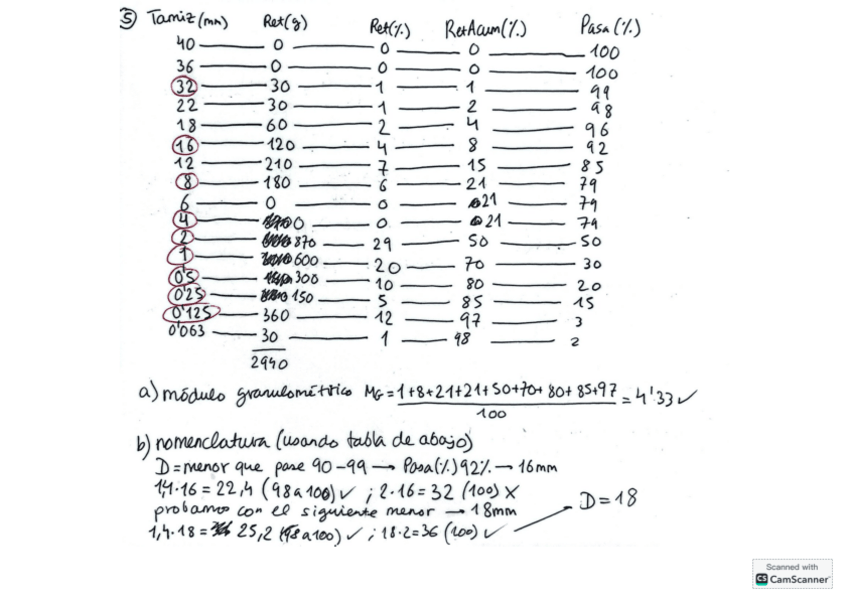 5 Tamiz (mm) Ret(g) Ret(%) RetAcum(%) Pasa (%)
40 0 0 0 100
36 0 0 0 100
32 30 1 1 99
22 30 1 2 98
18 60 2 4 96
16 120 4 8 92
12 210 7 15 85
8 180 6 21 79
6 0 0 21 79
4 0 0 21 79
2 870 29 50 50
1 600 20 70 30
0'5 300 10 80 20
0'25 150 5 85 15
0'125 360 12 97 3
0'063 30 1 98 2
2940
a) módulo granulométrico MG = 1+8+21+21+50+70+80+85+97 / 100 = 4'33 ✓
b) nomenclatura (usando tabla de abajo)
D = menor que pase 90-99 → Pasa(%) 92% → 16mm
1,4·16 = 22,4 (98 a 100) ✓ ; 2·16 = 32 (100) X
probamos con el siguiente menor → 18mm
1,4·18 = 25,2 (98 a 100) ✓ ; 18·2 = 36 (100) ✓ → D = 18
Scanned with
CS CamScanner